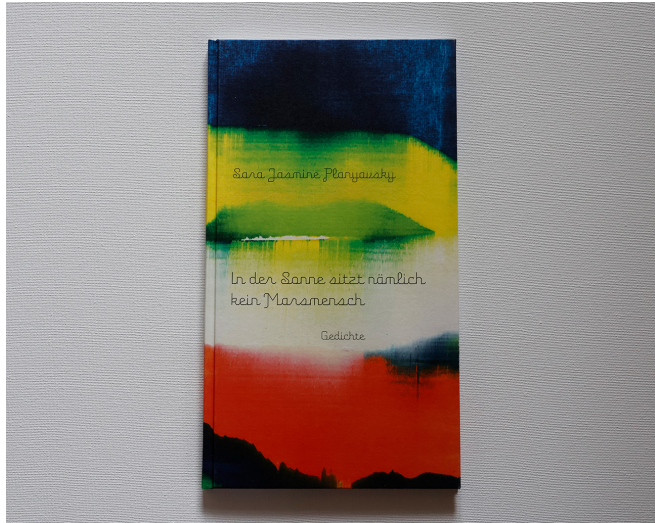 Sara Jasmine Planyavsky
In der Sonne sitzt nämlich
kein Marsmensch
Gedichte